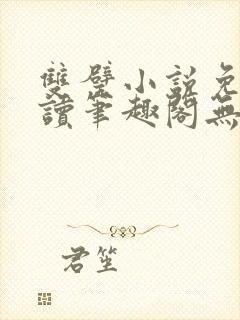 雙壁小說免
讀筆趣閣無
君笙